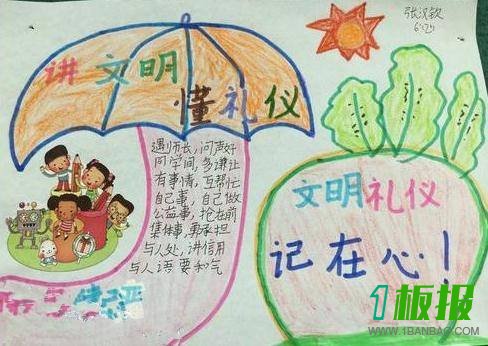 张汉钦
讲文明
懂礼仪
遇师长，问声好
同学间，多谦让
有事情，互帮忙
自己事，自己做
公益事，抢在前
集体事，勇承担
与人处，讲信用
与人语要和气
文明礼仪
记在心！
1板报
WWW.1BANBAO.COM